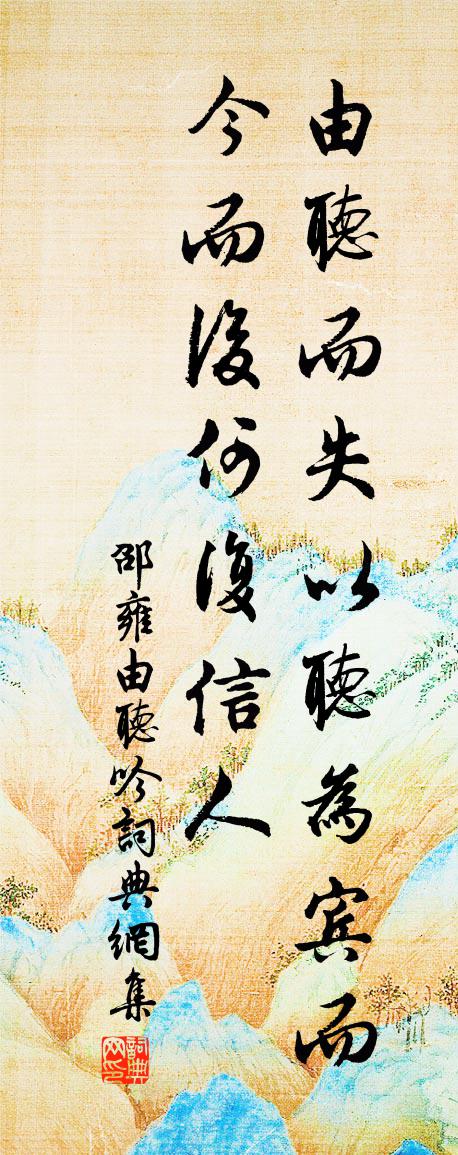 由聽而失以聽為賓而
今而後何復信人
邵雍由聽吟詞典網集
詞典
网印